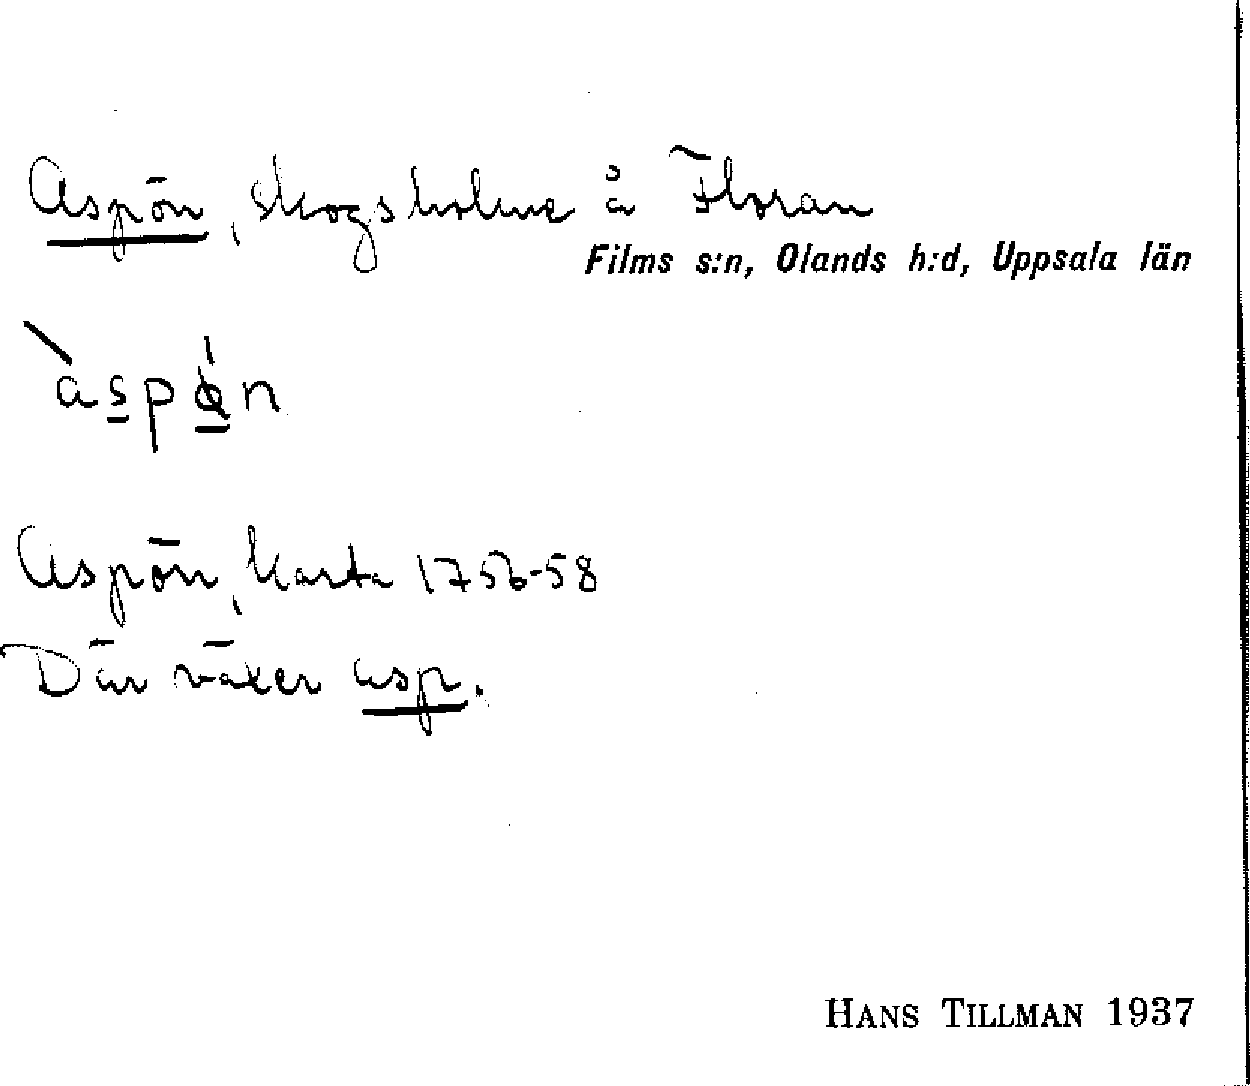 Aspön, skogsholme å Floran
Films s:n, Olands h:d, Uppsala län
àspǿn
Aspön, karta 1756-58
Där växer asp.
HANS TILLMAN 1937